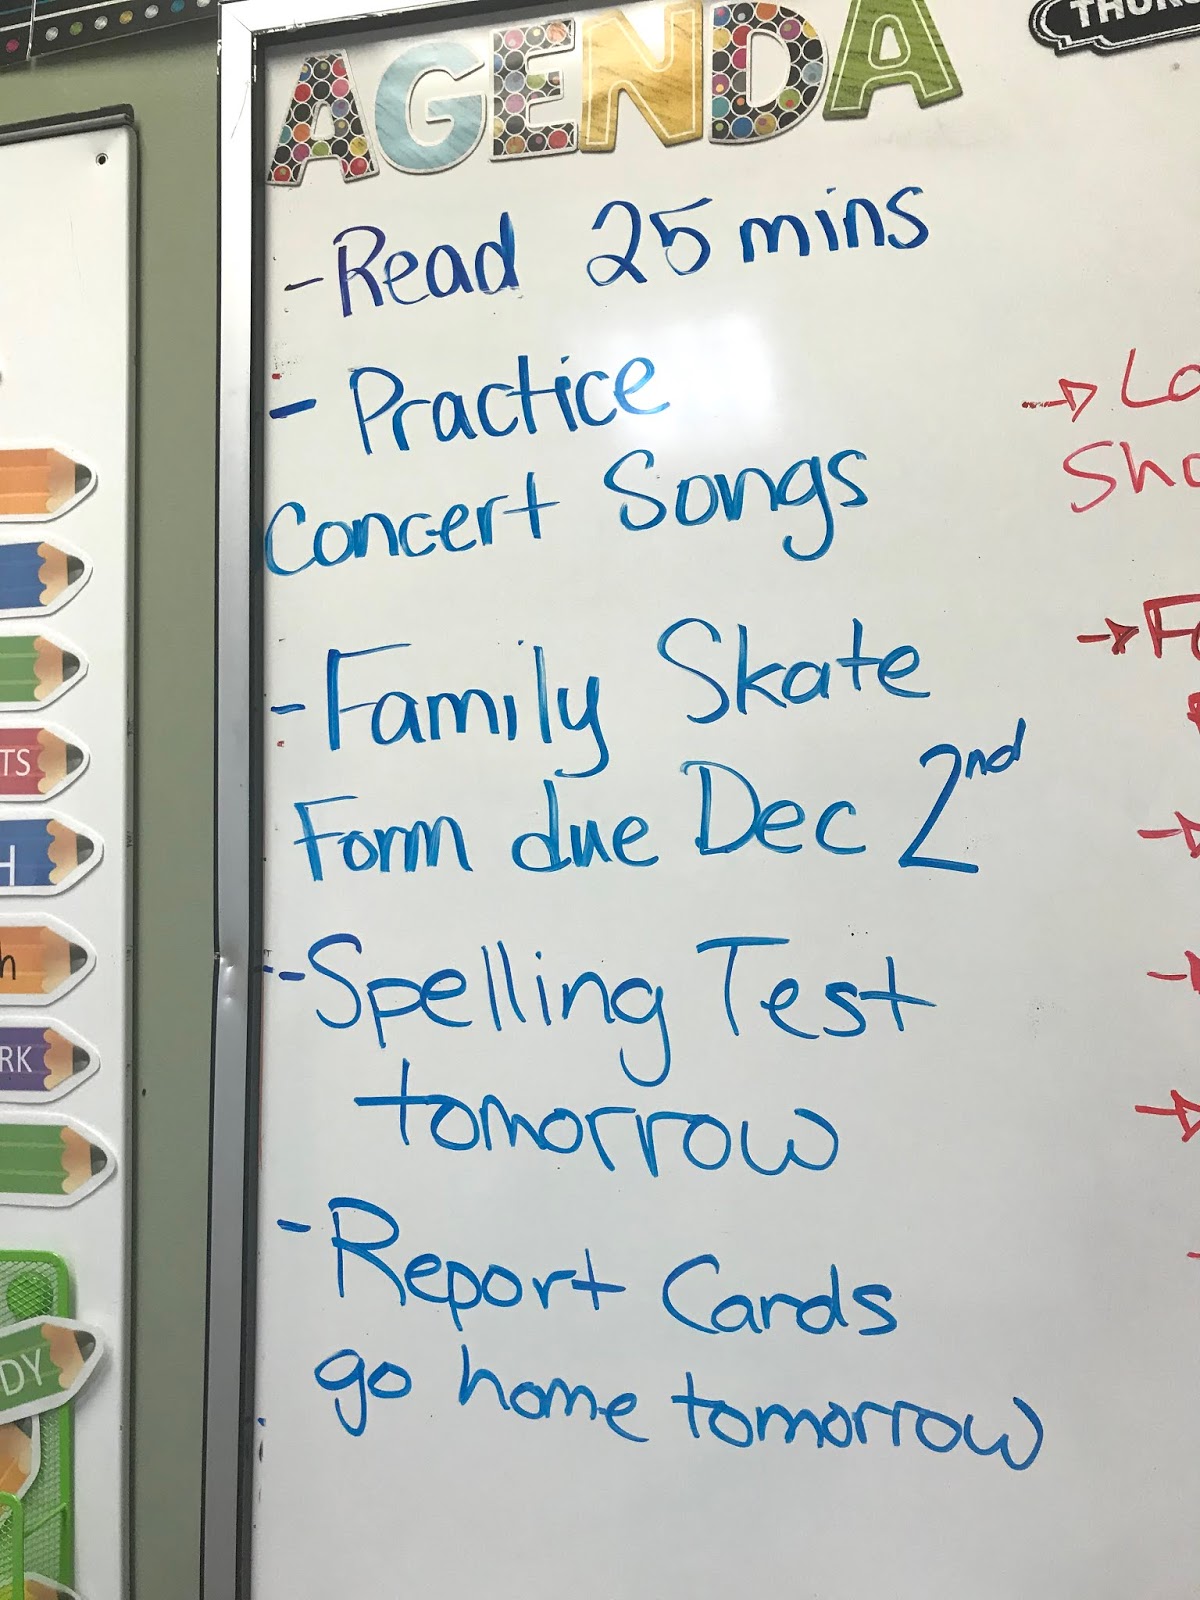 AGENDA
- Read 25 mins
- Practice
Concert Songs
- Family Skate
Form due Dec 2nd
- Spelling Test
tomorrow
- Report Cards
go home tomorrow